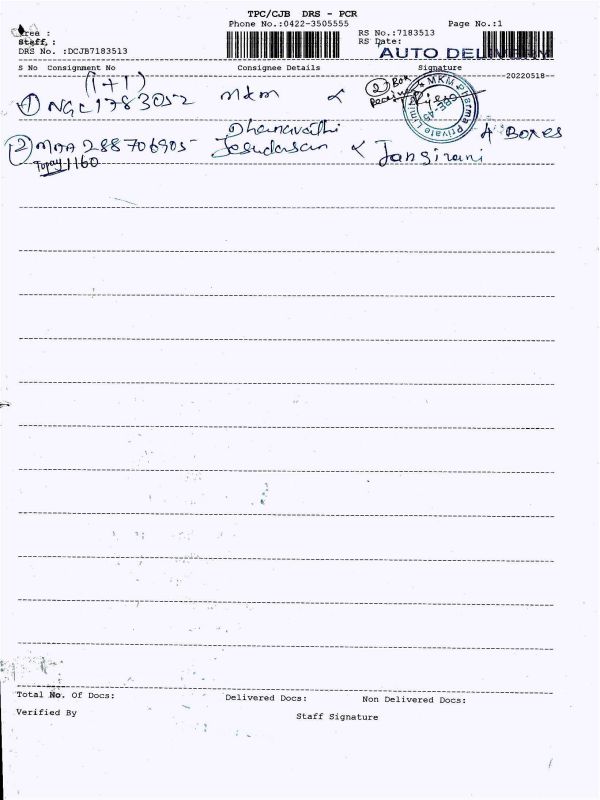 TPC/CJB DRS - PCR
Phone No.:0422-3505555 Page No.:1
Area :
Staff. : RS No.:7183513
DRS No. :DCJB7183513 RS Date:
AUTO DELIVERY
S No Consignment No Consignee Details Signature
20220518
(1+1)
1 NGL1783052 MKM 2 Box
MKM Pharma Private Limited
CBE-45
Dhanavathi
2 MAA 288706905 Jesudasan Jansirani 4 Boxes
Topay 1160
Total No. Of Docs: Delivered Docs: Non Delivered Docs:
Verified By Staff Signature